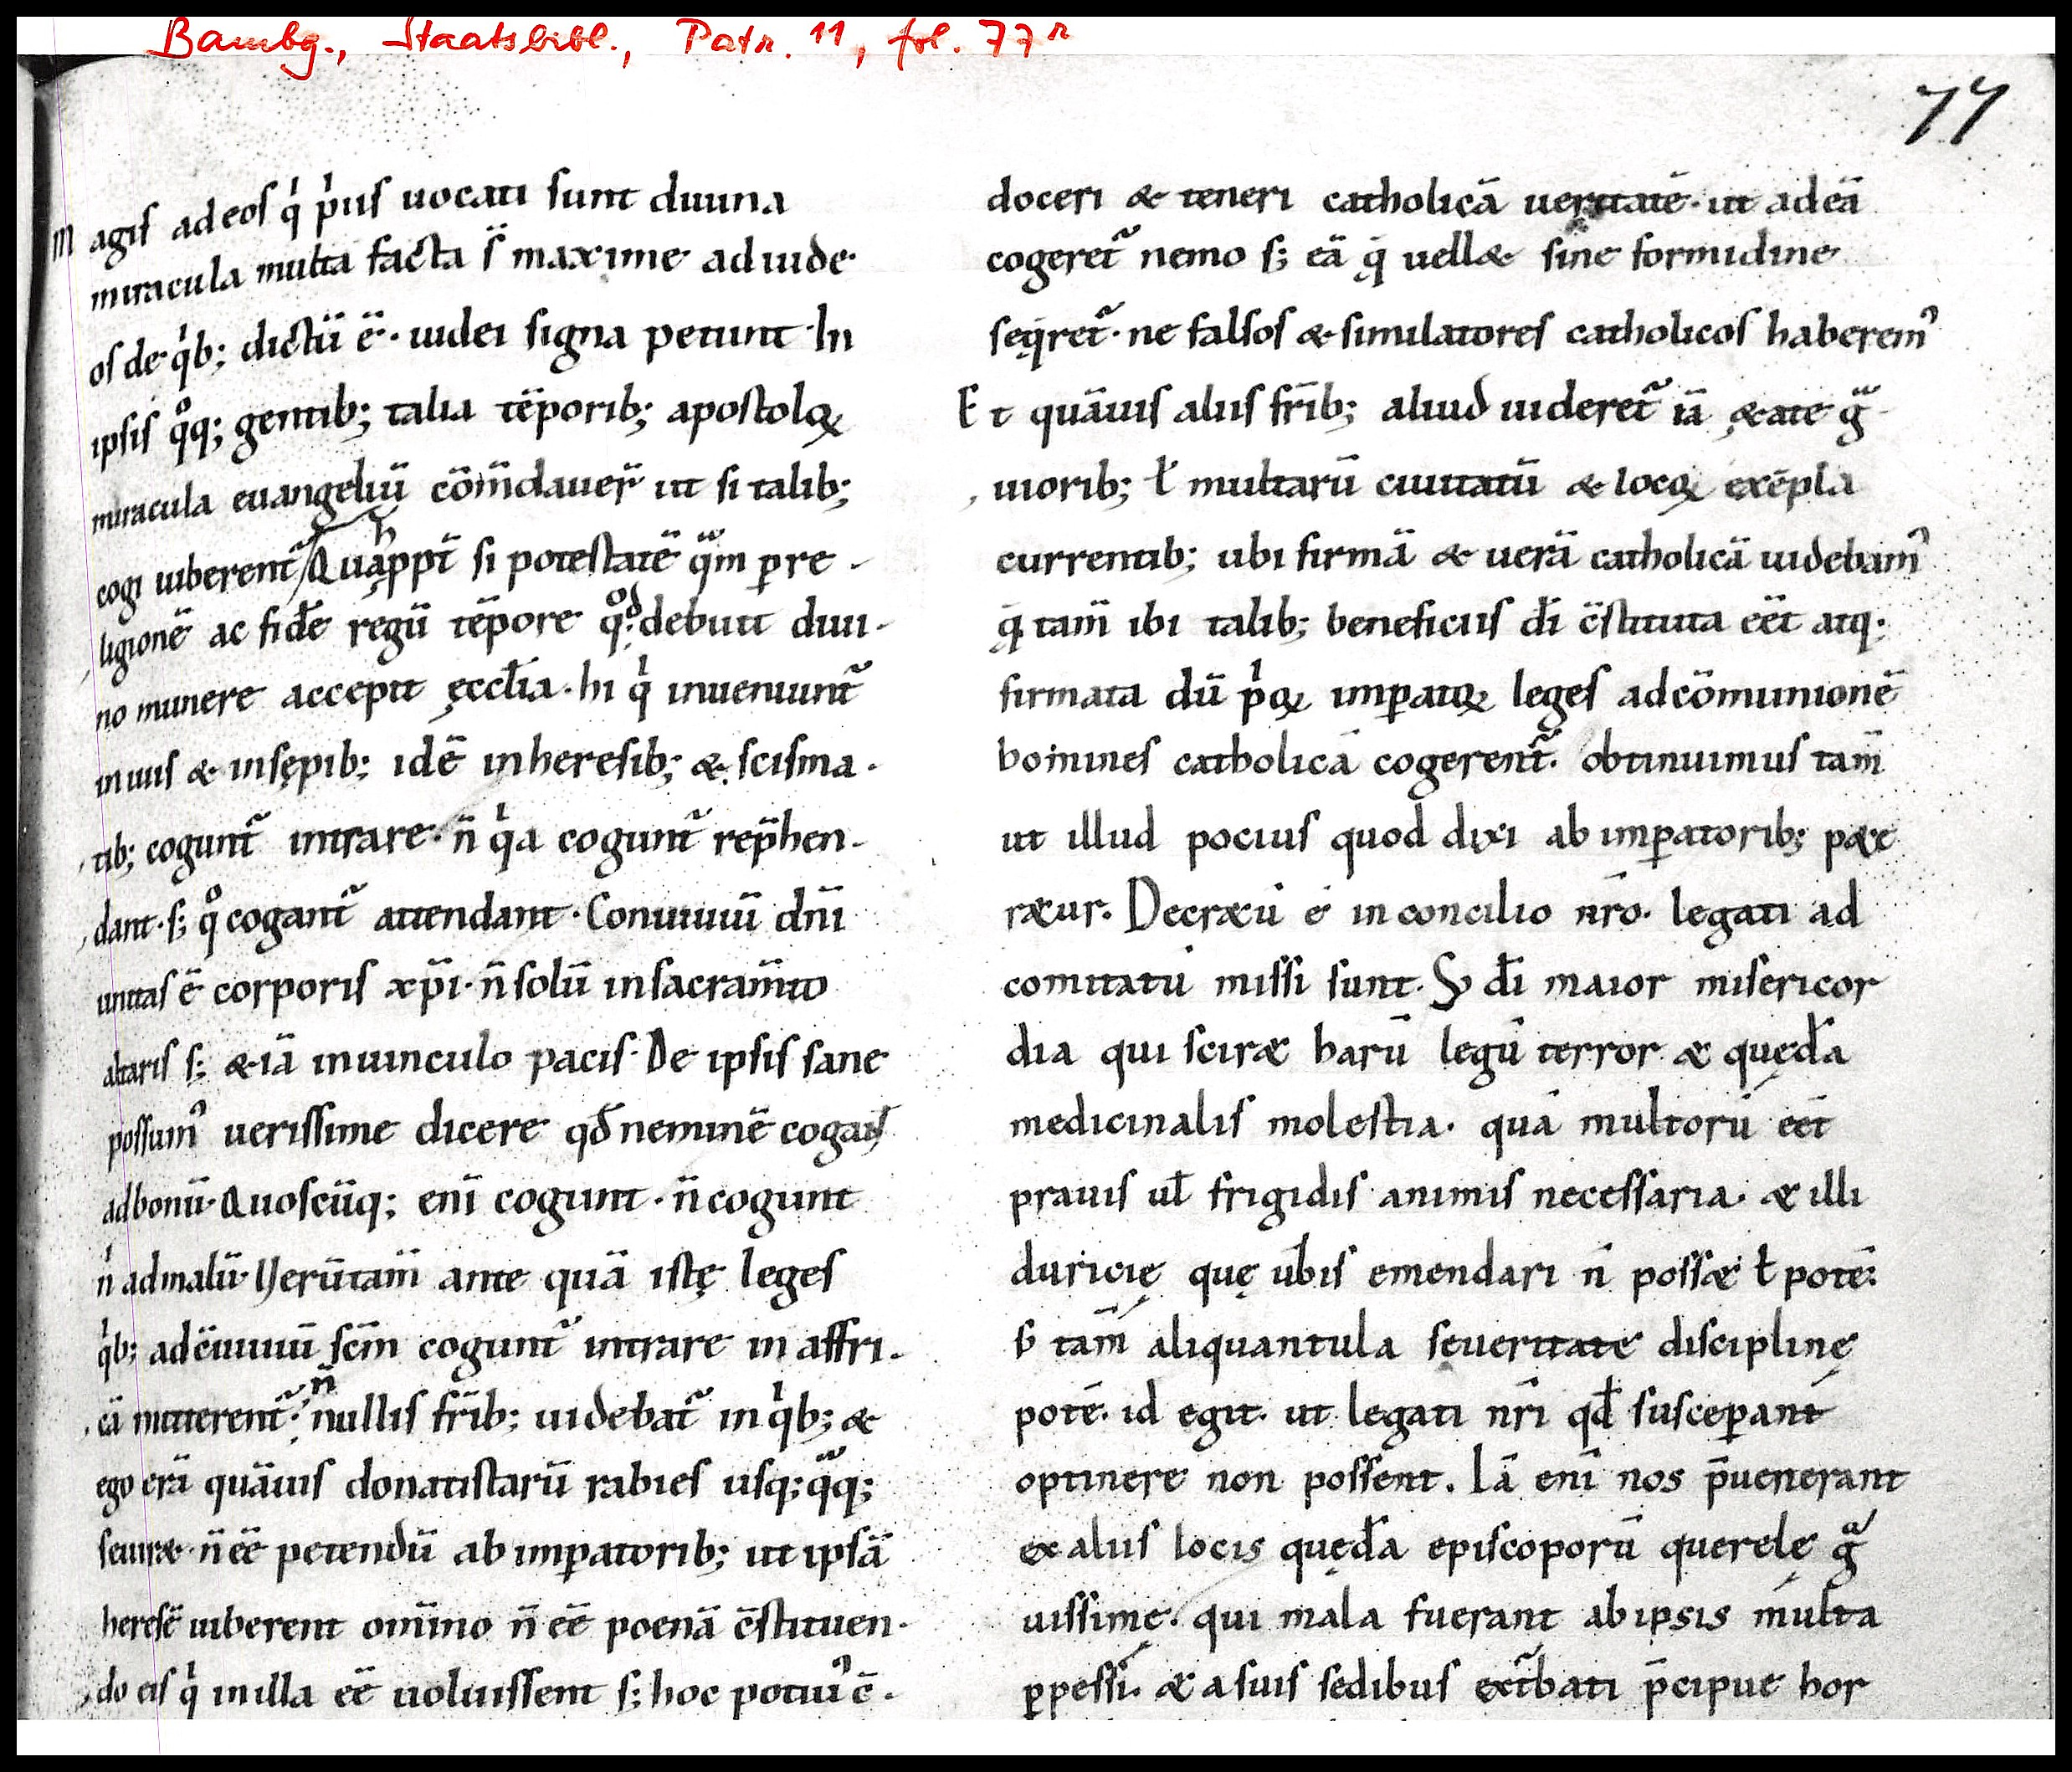 Bambg., Staatsbibl., Patr. 11, fol. 77r
77
Magis ad eos qͥ pͥus uocati sunt diuina
miracula multa facta s̄ maxime ad iude
os de qͥb; dictū ē. iudei signa petunt In
ipsis qͦq; gentib; talia tēporib; apostoloꝝ
miracula euangeliū cōm̄dauer̄ ut si talib;
cogi iuberent᷑ Quappt̄ si potestatē qᵃm p̲re
ligionē ac fidē regū tēpore qͦd debuit diui
no munere accepit ęccłia. hi qͥ inueniunt᷑
in uiis & in sępib; idē in heresib; & scisma
tib; cogunt᷑ intrare. n̄ qͥa cogunt᷑ rep̄hen
dant. s; qͦ cogant᷑ attendant. Conuiuiū dn̄i
unitas ē corporis xp̄i. n̄ solū in sacram̄to
altaris s; &iā in uinculo pacis. De ipsis sane
possum᾽ uerissime dicere qđ neminē cogan̄t
ad bonū. Quoscūq; enī cogunt. n̄ cogunt
nͥ ad malū. Uerūtam̄ ante quā istę leges
qͥb; ad cōuiuiū sc̄m cogunt᷑ intrare in affri
cā mitterent᷑. n̄nullis fr̄ib; uidebat᷑ in qͥb; &
ego erā quāuis donatistarū rabies usq; qᵃq;
seuir&. n̄ ēē petendū ab imp̲atorib; ut ipsā
heresē iuberent om̄ino n̄ ēē poenā c̄stituen
do eis qͥ in illa ēē uoluissent s; hoc potiu᾽ c̄
doceri & teneri catholicā ueritatē. ut ad eā
cogeret᷑ nemo s; eā q̄ uell& sine formidine
seq̄ret᷑. ne falsos & simulatores catholicos haberem᾽
Et quāuis aliis fr̄ib; aliud uideret᷑ iā ę&ate gᵃ
uiorib; ł multarū ciuitatū & locoꝝ exēpla
currentib; ubi firmā & uerā catholicā uidebam᾽
q̄ tam̄ ibi talib; beneficiis dī c̄stituta eēt atq;
firmata dū pͥoꝝ imp̲atoꝝ leges ad cōmunionē
homines catholicā cogerent᷑. obtinuimus tam̄
ut illud pocius quod dixi ab imp̲atorib; p&e
r&ur. Decr&ū ē in concilio nr̄o. legati ad
comitatū missi sunt. S; dī maior misericor
dia qui scir& harū legū terror & quędā
medicinalis molestia. quā multorū eēt
prauis uł frigidis animis necessaria. & illi
duricię quę ūbis emendari n̄ poss& ł potē:
s; tam̄ aliquantula seueritate disciplinę
potē. id egit. ut legati nr̄i qđ suscep̲ant
optinere non possent. Iā enī nos p̄uenerant
ex aliis locis quędā episcoporū querelę gᵃ
uissimę. qui mala fuerant ab ipsis multa
p̲pessi. & a suis sedibus ext᷑bati p̄cipue hor